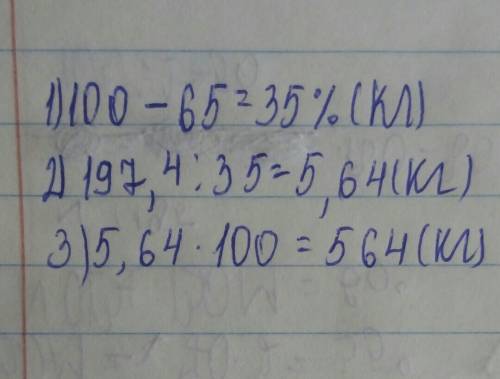 1) 100 - 65 = 35% (КЛ)
2) 197,4 : 35 = 5,64 (КГ)
3) 5,64 · 100 = 564 (КГ)